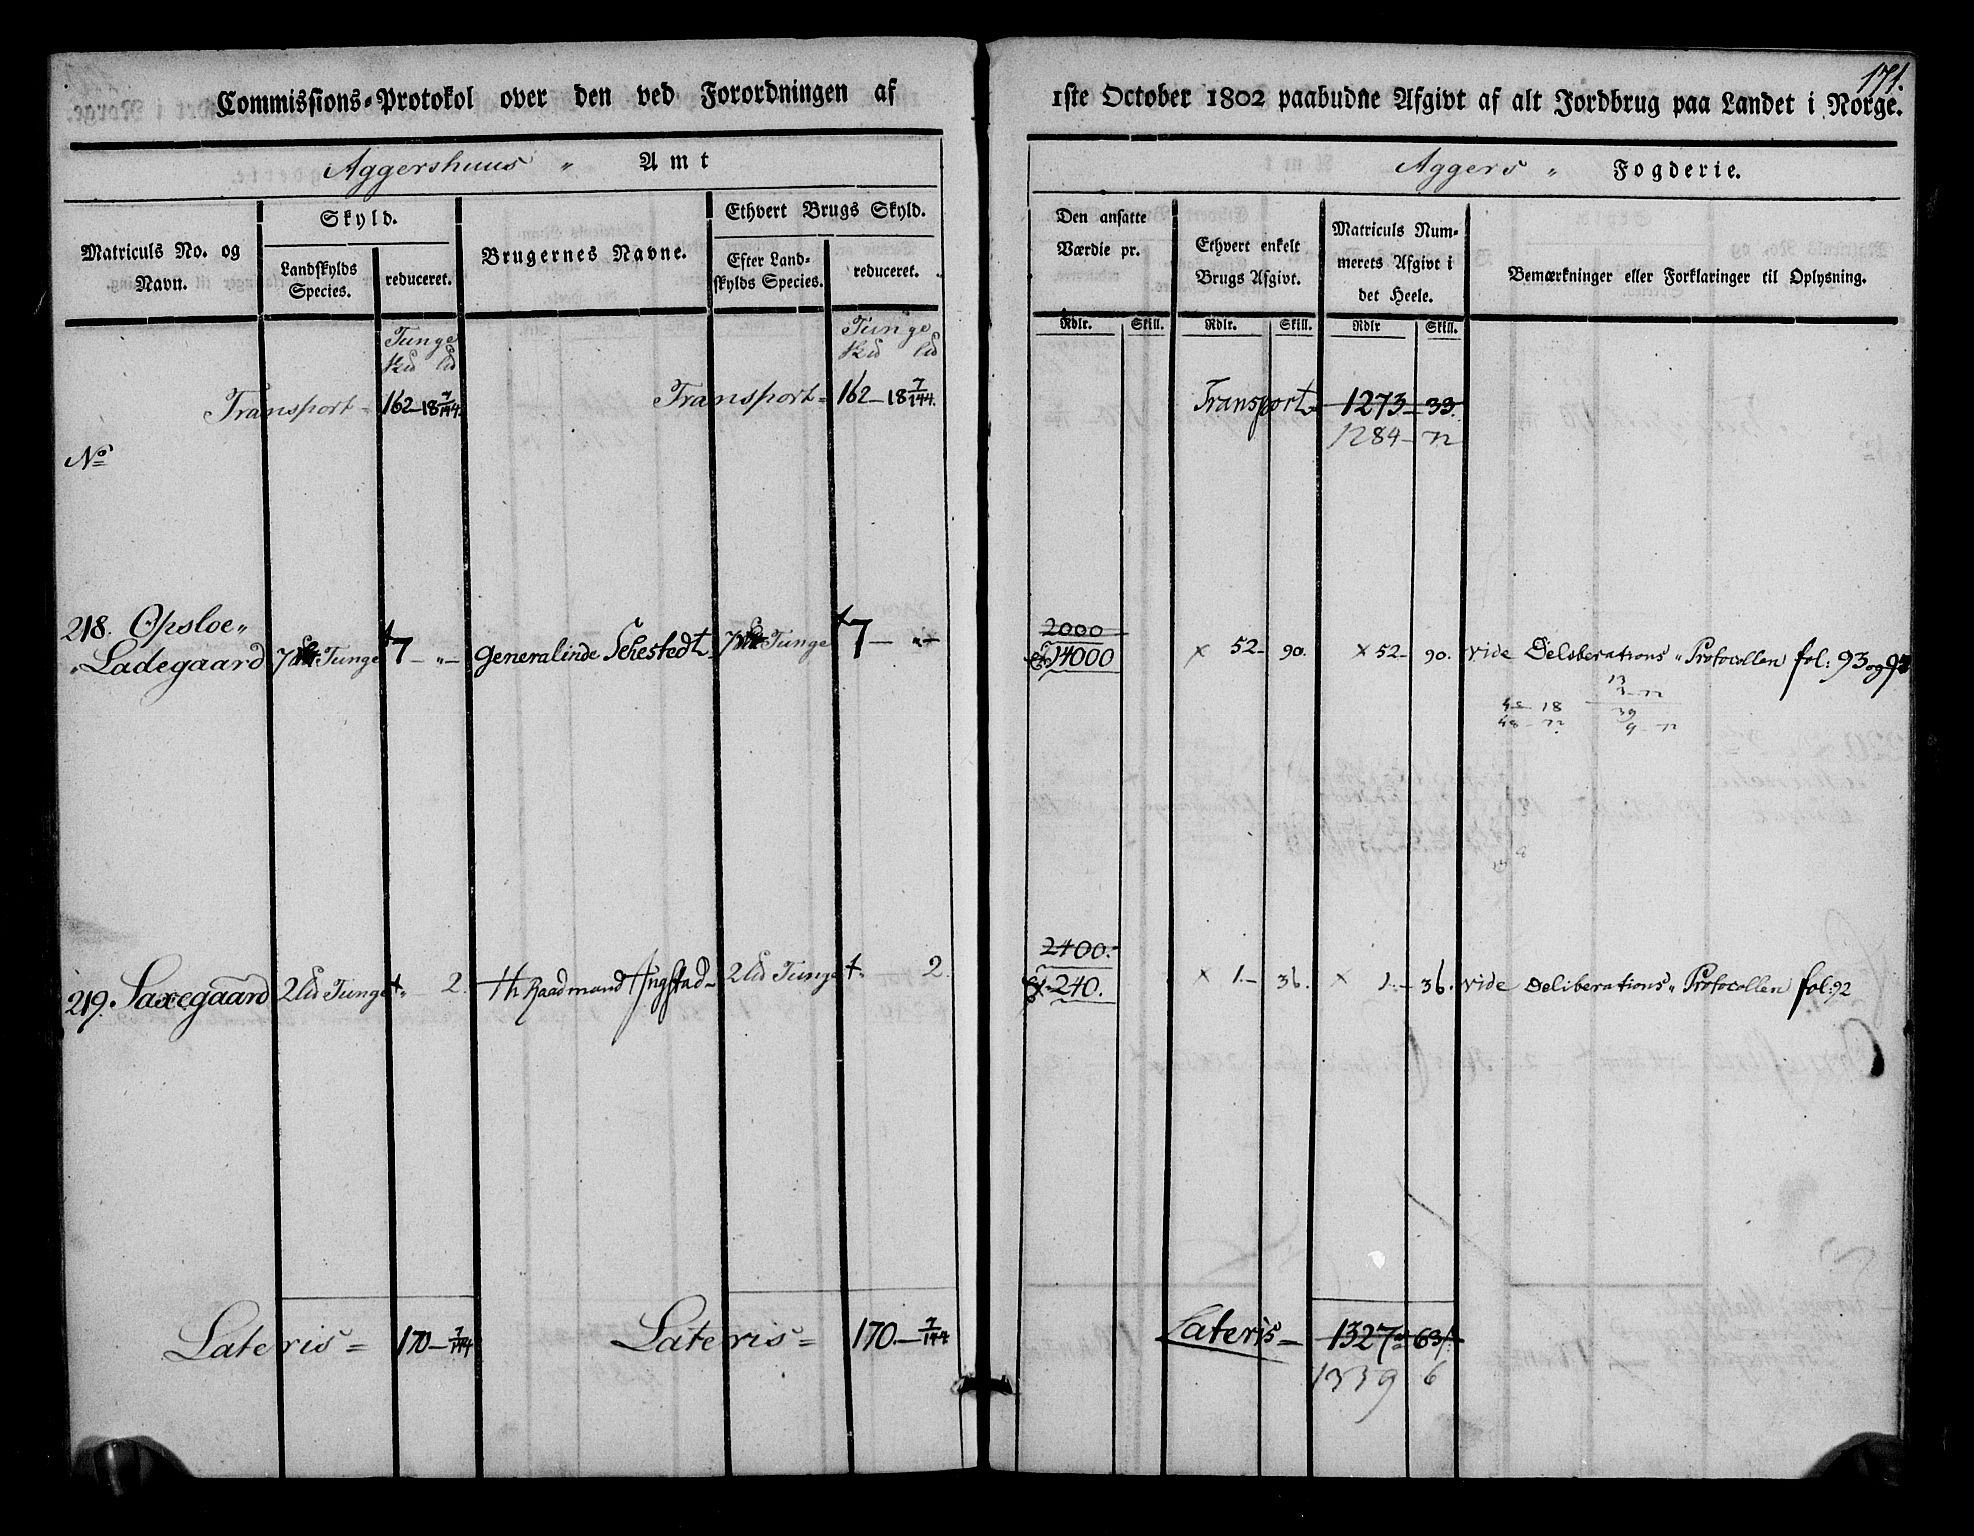 171.
Commissions-Protokol over den ved Forordningen af 1ste October 1802 paabudne Afgivt af alt Jordbrug paa Landet i Norge.
Aggershuus " Amt
Aggers " Fogderie.
Matriculs No. og Navn.
Skyld.
Landskylds Species.
reduceret.
Brugernes Navne.
Ethvert Brugs Skyld.
Efter Landskylds Species.
reduceret.
Den ansatte Værdie pr.
Ethvert enkelt Brugs Afgivt.
Matriculs Nummerets Afgivt i det Heele.
Bemærkninger eller Forklaringer til Oplysning.
Rdlr. Skill. Rdlr. Skill. Rdlr Skill.
Tunge
Tunge
Transport = 162 - 18 7/144. Transport = 162 - 18 7/144. Transport 1273 - 33.
1284 - 72
No
218. Opsloe "
2000
" Ladegaard 7 Tunge 7 - " - Generalinde Sehestedt 7 Tunge 7 - " - 14000 x 52 - 90. x 52 - 90. vide Deliberations " Protocollen fol: 93 og
18
13
39
9 - 72
2400.
219. Saxegaard 2 Tunge " 2. Hr Raadmand Ingstad - 2 Tunge " 2. 240. x 1. - 36. x 1. - 36. vide Deliberations " Protocollen fol: 92
Lateris = 170 - 7/144 Lateris = 170. - 7/144 Lateris - 1327 - 63.
1339 6